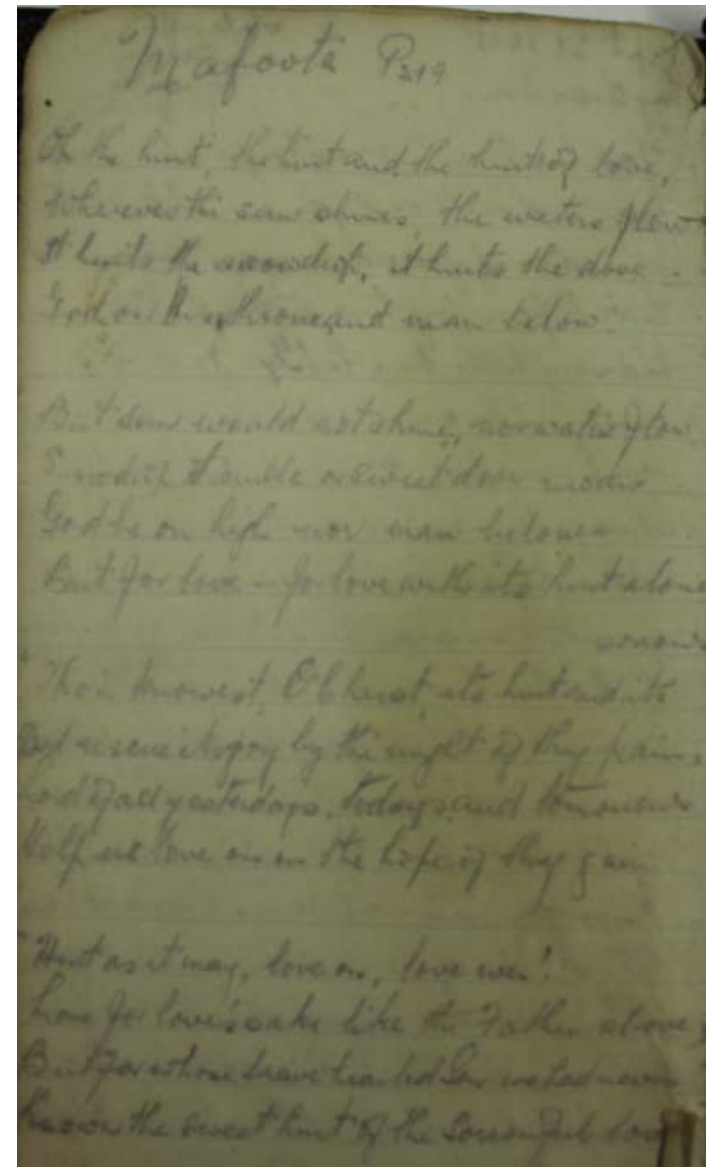 Mafoota P219
Oh the hurt, the hurt and the hurt of love,
Wherever the sun shines, the waters flow
It hurts the snowdrop, it hurts the dove -
God on His throne, and man below.
But sun would not shine, nor waters flow
Snowdrop tremble or sweet dove moan
God be on high nor man below
But for love - for love with its hurt alone
sorrows
Thou knowest, O Christ, its hurt and its
Did rescue its joy by the might of thy pain,
Lord of all yesterdays, todays, and tomorrows
Help us love on in the hope of thy gain
"Hurt as it may, love on, love ever!
Love for love's sake like the Father above,
But for whose brave hearted Son we had never
Known the sweet hurt of the sorrowful love